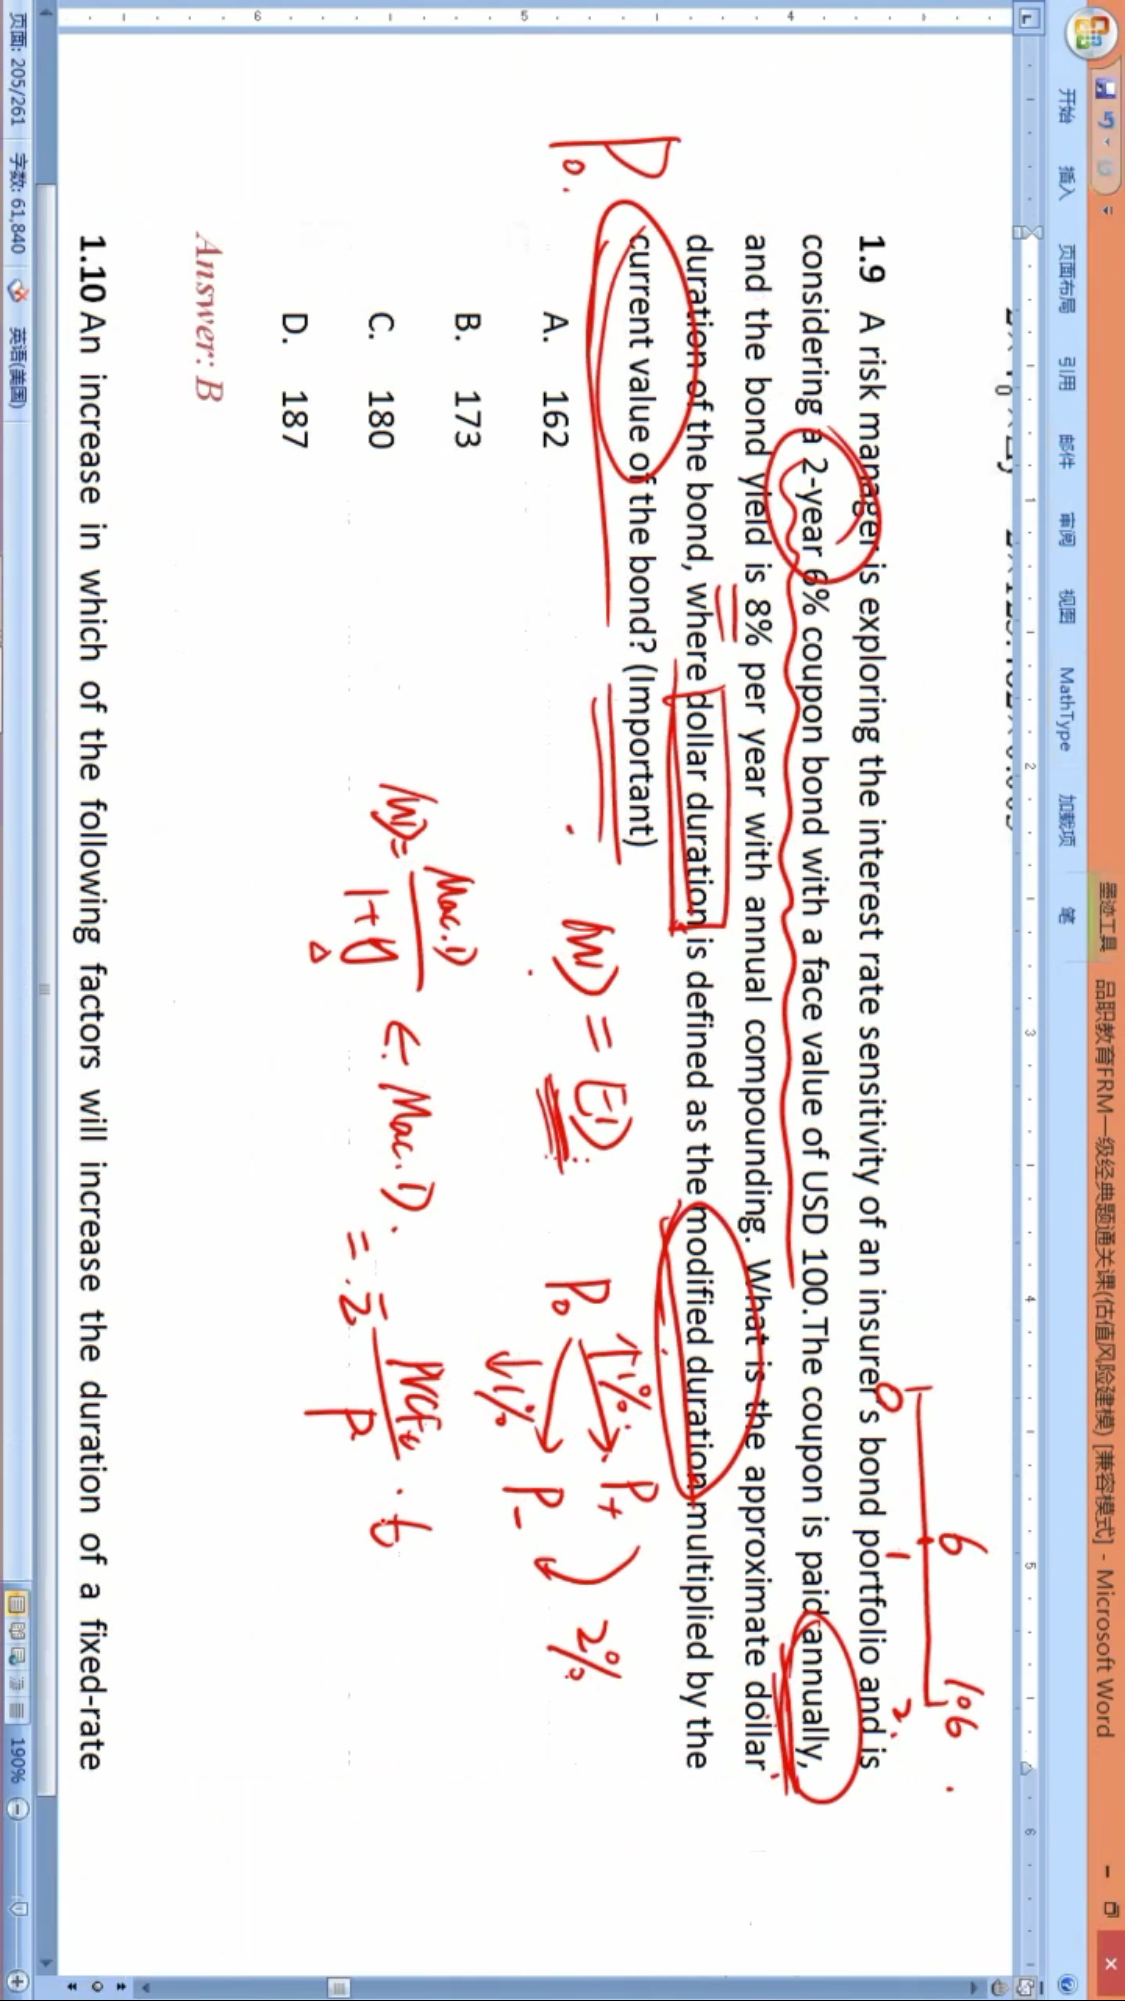 墨迹工具 品职教育FRM一级经典题通关课(估值风险建模) [兼容模式] - Microsoft Word
开始 插入 页面布局 引用 邮件 审阅 视图 MathType 加载项 笔
0 6 106
1 2
1.9 A risk manager is exploring the interest rate sensitivity of an insurer's bond portfolio and is
considering a 2-year 6% coupon bond with a face value of USD 100.The coupon is paid annually,
and the bond yield is 8% per year with annual compounding. What is the approximate dollar
duration of the bond, where dollar duration is defined as the modified duration multiplied by the
current value of the bond? (Important)
P0.
A. 162
B. 173
C. 180
D. 187
MD = ED
P0 ↑1% P+
↓1% P- 2%
MD = Mac.D
1+y
← Mac.D.
= Σ PVCFt · t
P
Answer: B
1.10 An increase in which of the following factors will increase the duration of a fixed-rate
页面: 205/261 字数: 61,840 英语(美国) 190%